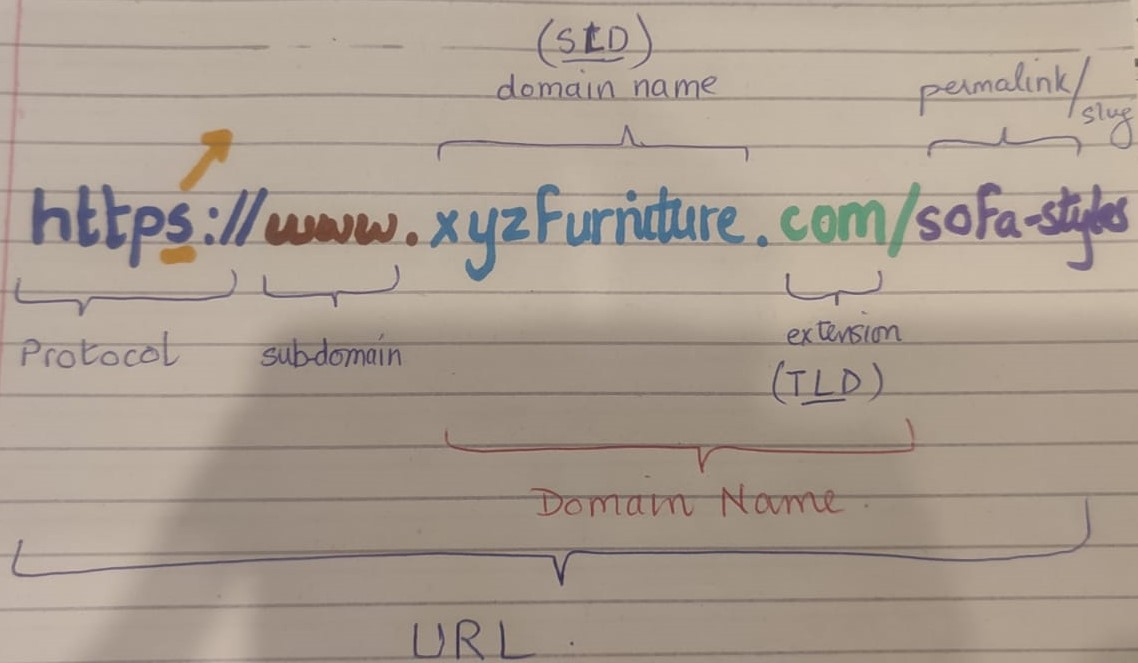 (SLD)
domain name
permalink/
slug
https://www.xyzfurniture.com/sofa-styles
Protocol
subdomain
extension
(TLD)
Domain Name
URL